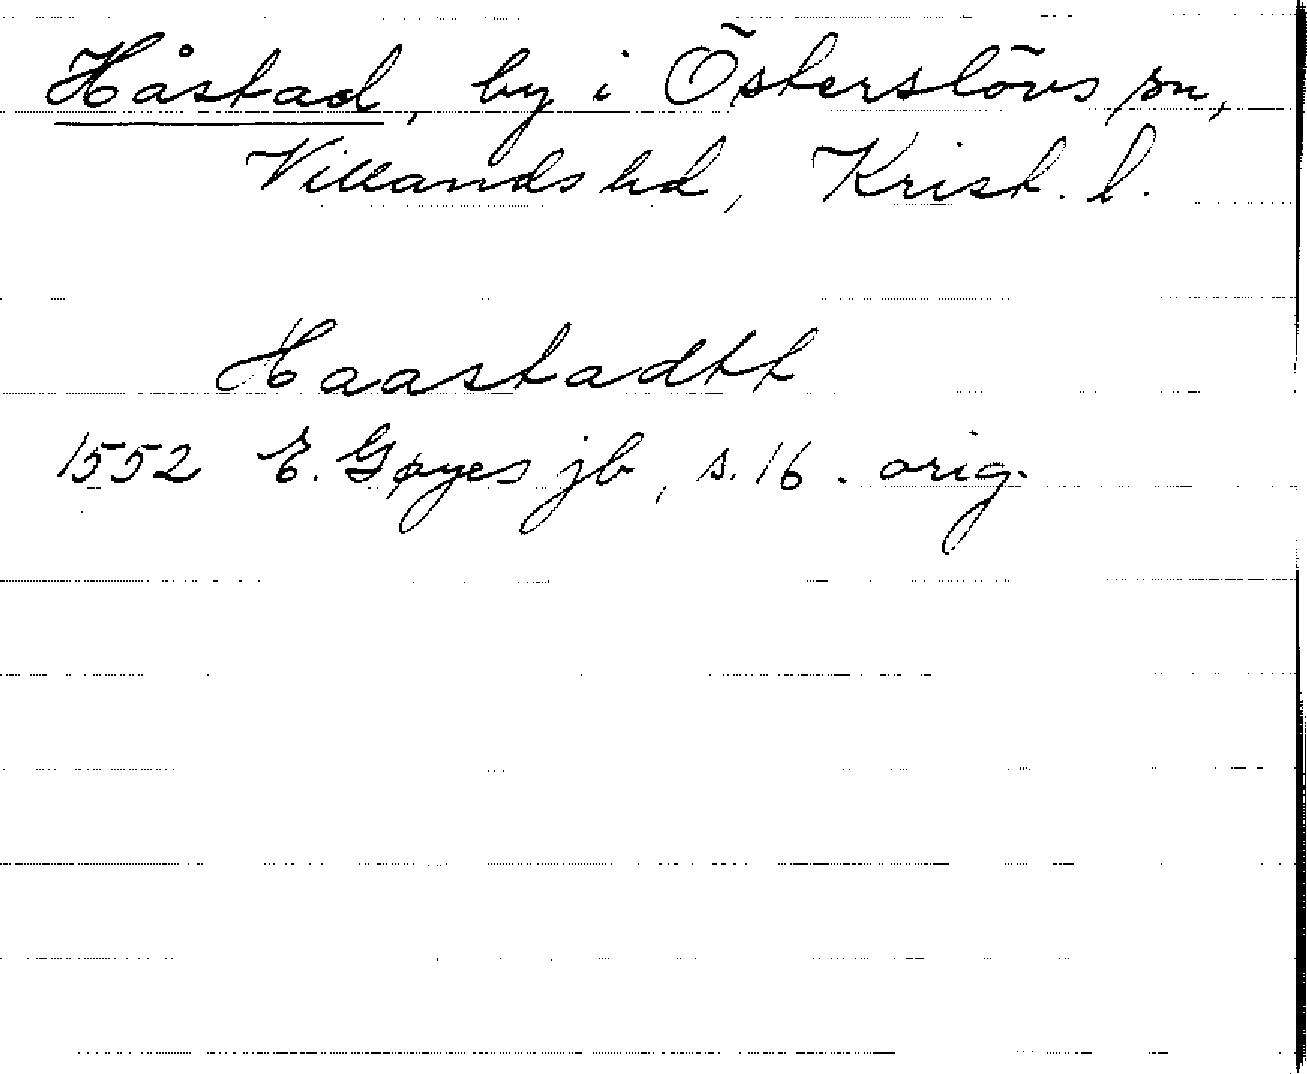 Håstad, by i Österslövs sn,
Villands hd, Krist. l.
Haastadtt
1552 E. Gøyes jb, s. 16. orig.